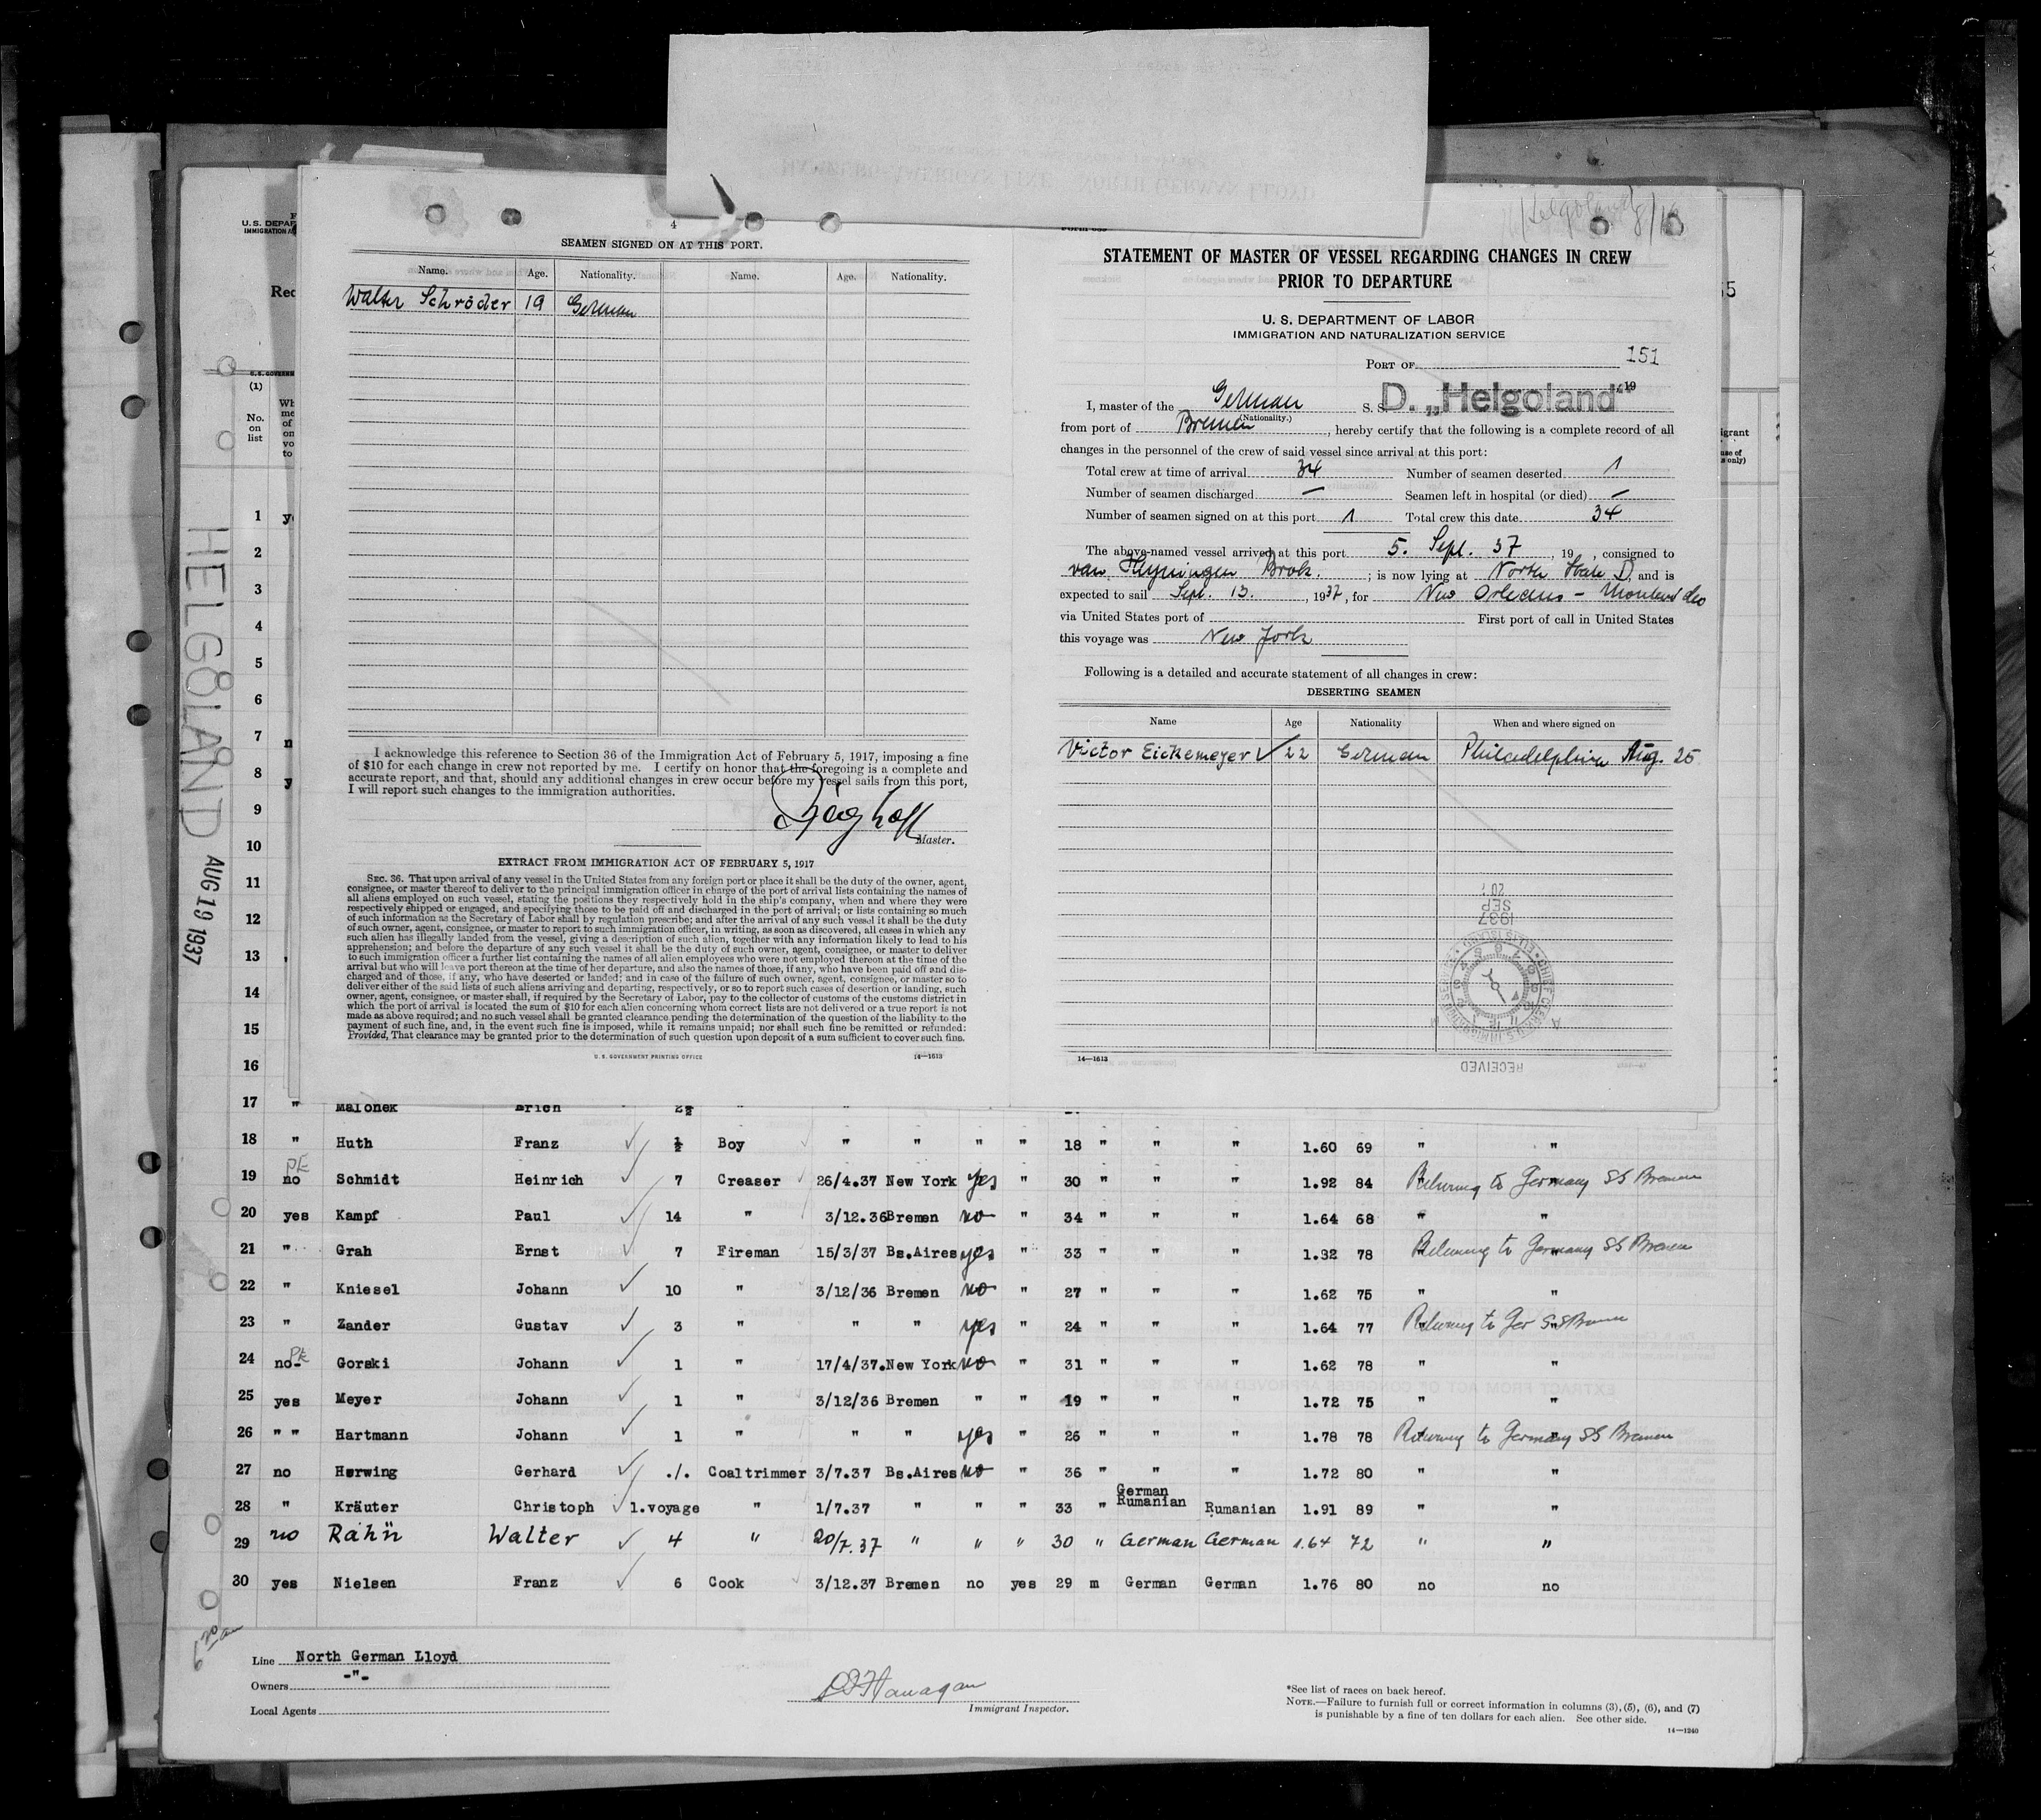 SEAMEN SIGNED ON AT THIS PORT.
Name. Age. Nationality. Name. Age. Nationality.
Walter Schröder 19 German
I acknowledge this reference to Section 36 of the Immigration Act of February 5, 1917, imposing a fine
of $10 for each change in crew not reported by me. I certify on honor that the foregoing is a complete and
accurate report, and that, should any additional changes in crew occur before my vessel sails from this port,
I will report such changes to the immigration authorities.
Master.
EXTRACT FROM IMMIGRATION ACT OF FEBRUARY 5, 1917
SEC. 36. That upon arrival of any vessel in the United States from any foreign port or place it shall be the duty of the owner, agent,
consignee, or master thereof to deliver to the principal immigration officer in charge of the port of arrival lists containing the names of
all aliens employed on such vessel, stating the positions they respectively hold in the ship's company, when and where they were
respectively shipped or engaged, and specifying those to be paid off and discharged in the port of arrival; or lists containing so much
of such information as the Secretary of Labor shall by regulation prescribe; and after the arrival of any such vessel it shall be the duty
of such owner, agent, consignee, or master to report to such immigration officer, in writing, as soon as discovered, all cases in which any
such alien has illegally landed from the vessel, giving a description of such alien, together with any information likely to lead to his
apprehension; and before the departure of any such vessel it shall be the duty of such owner, agent, consignee, or master to deliver
to such immigration officer a further list containing the names of all alien employees who were not employed thereon at the time of the
arrival but who will leave port thereon at the time of her departure, and also the names of those, if any, who have been paid off and dis-
charged and of those, if any, who have deserted or landed; and in case of the failure of such owner, agent, consignee, or master so to
deliver either of the said lists of such aliens arriving and departing, respectively, or so to report such cases of desertion or landing, such
owner, agent, consignee, or master shall, if required by the Secretary of Labor, pay to the collector of customs of the customs district in
which the port of arrival is located the sum of $10 for each alien concerning whom correct lists are not delivered or a true report is not
made as above required; and no such vessel shall be granted clearance pending the determination of the question of the liability to the
payment of such fine, and, in the event such fine is imposed, while it remains unpaid; nor shall such fine be remitted or refunded:
Provided, That clearance may be granted prior to the determination of such question upon deposit of a sum sufficient to cover such fine.
U. S. GOVERNMENT PRINTING OFFICE 14—1613
Helgoland 8/19
STATEMENT OF MASTER OF VESSEL REGARDING CHANGES IN CREW
PRIOR TO DEPARTURE
U. S. DEPARTMENT OF LABOR
IMMIGRATION AND NATURALIZATION SERVICE
PORT OF 151
I, master of the German S. S. D. „Helgoland" 19
(Nationality.)
from port of Bremen, hereby certify that the following is a complete record of all
changes in the personnel of the crew of said vessel since arrival at this port:
Total crew at time of arrival 34 Number of seamen deserted 1
Number of seamen discharged — Seamen left in hospital (or died) —
Number of seamen signed on at this port 1 Total crew this date 34
The above-named vessel arrived at this port 5. Sept. 37, 19 , consigned to
van Heyningen Brok. ; is now lying at North D. and is
expected to sail Sept. 13. , 1937, for New Orleans – Montevideo
via United States port of First port of call in United States
this voyage was New York
Following is a detailed and accurate statement of all changes in crew:
DESERTING SEAMEN
Name Age Nationality When and where signed on
Victor Eickemeyer ✓ 22 German Philadelphia Aug. 25
1937
SEP
20
RECEIVED
14—1613
U. S. DEPAR
IMMIGRATION A
(1)
No.
on
list
HELGOLAND AUG 19 1937
1
2
3
4
5
6
7
8
9
10
11
12
13
14
15
16
17 " Malonek Erich
18 " Huth Franz ✓ ½ Boy " " " " 18 " " " 1.60 69 " "
19 PE no Schmidt Heinrich ✓ 7 Creaser 26/4.37 New York yes " 30 " " " 1.92 84 Returning to Germany SS Bremen
20 yes Kampf Paul ✓ 14 " 3/12.36 Bremen no " 34 " " " 1.64 68 " "
21 " Grah Ernst ✓ 7 Fireman 15/3/37 Bs.Aires yes " 33 " " " 1.32 78 Returning to Germany SS Bremen
22 " Kniesel Johann ✓ 10 " 3/12/36 Bremen no " 27 " " " 1.62 75 " "
23 " Zander Gustav ✓ 3 " " " yes " 24 " " " 1.64 77 Returning to Ger SS Bremen
24 no- PE Gorski Johann ✓ 1 " 17/4/37. New York no " 31 " " " 1.62 78 " "
25 yes Meyer Johann ✓ 1 " 3/12/36 Bremen " " 19 " " " 1.72 75 " "
26 " " Hartmann Johann ✓ 1 " " " yes " 26 " " " 1.78 78 Returning to Germany SS Bremen
27 no Herwing Gerhard ✓ ./. Coaltrimmer 3/7.37 Bs.Aires no " 36 " " " 1.72 80 " "
28 " Kräuter Christoph ✓ 1.voyage " 1/7.37 " " " 33 " German Rumanian Rumanian 1.91 89 " "
29 no Rähn Walter ✓ 4 " 20/7.37 " " " 30 " German German 1.64 72 " "
30 yes Nielsen Franz ✓ 6 Cook 3/12.37 Bremen no yes 29 m German German 1.76 80 no no
Line North German Lloyd
Owners -"-
Local Agents
Immigrant Inspector.
*See list of races on back hereof.
NOTE.—Failure to furnish full or correct information in columns (3), (5), (6), and (7)
is punishable by a fine of ten dollars for each alien. See other side.
14—1240